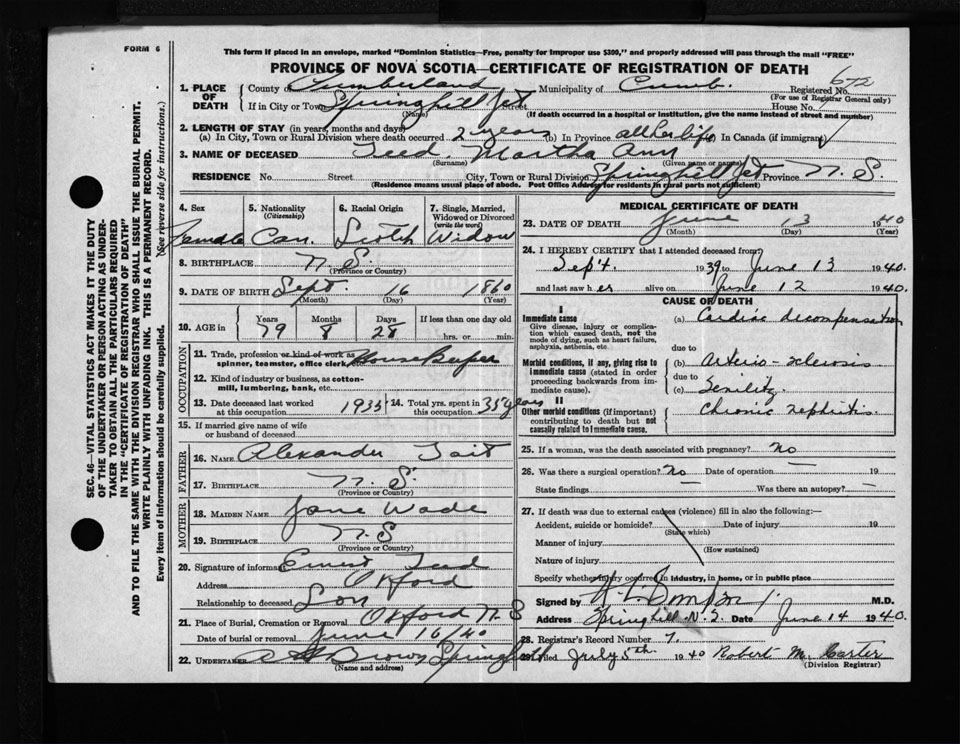 FORM 6
This form if placed in an envelope, marked "Dominion Statistics—Free, penalty for improper use $300," and properly addressed will pass through the mail "FREE"
PROVINCE OF NOVA SCOTIA—CERTIFICATE OF REGISTRATION OF DEATH
672
1. PLACE OF DEATH County of Cumberland Municipality of Cumb. Registered No.
(For use of Registrar General only)
If in City or Town Springhill Jct Street House No.
(Name)
(If death occurred in a hospital or institution, give the name instead of street and number)
2. LENGTH OF STAY (in years, months and days)
(a) In City, Town or Rural Division where death occurred 2 years (b) In Province all her life In Canada (if immigrant) /
3. NAME OF DECEASED Teed Martha Ann
(Surname) (Given name or names)
RESIDENCE No. Street City, Town or Rural Division Springhill Jct Province N. S.
(Residence means usual place of abode. Post Office Address for residents in rural parts not sufficient)
4. Sex 5. Nationality (Citizenship) 6. Racial Origin 7. Single, Married, Widowed or Divorced (write the word)
Female Can. Scotch Widow
8. BIRTHPLACE N. S.
(Province or Country)
9. DATE OF BIRTH Sept. 16 1860
(Month) (Day) (Year)
10. AGE in Years Months Days If less than one day old
79 8 28 hrs. or min.
OCCUPATION
11. Trade, profession or kind of work as spinner, teamster, office clerk, House Keeper
12. Kind of industry or business, as cotton-mill, lumbering, bank, etc.
13. Date deceased last worked at this occupation 1935 14. Total yrs. spent in this occupation 35 years
15. If married give name of wife or husband of deceased
FATHER
16. NAME Alexander Tait
17. BIRTHPLACE N. S.
(Province or Country)
MOTHER
18. MAIDEN NAME Jane Wade
19. BIRTHPLACE N. S
(Province or Country)
20. Signature of informant Ernest Teed
Address Oxford
Relationship to deceased Son
21. Place of Burial, Cremation or Removal Oxford N. S
Date of burial or removal June 16/40
22. UNDERTAKER Brown Springhill
(Name and address)
MEDICAL CERTIFICATE OF DEATH
23. DATE OF DEATH June 13 1940
(Month) (Day) (Year)
24. I HEREBY CERTIFY that I attended deceased from
Sept. 1939 to June 13 1940.
and last saw her alive on June 12 1940.
CAUSE OF DEATH
I
Immediate cause (a) Cardiac decompensation
Give disease, injury or complication which caused death, not the mode of dying, such as heart failure, asphyxia, asthenia, etc.
due to
Morbid conditions, if any, giving rise to immediate cause (stated in order proceeding backwards from immediate cause).
(b) Arterio-sclerosis
due to
(c) Senility.
II
Other morbid conditions (if important) contributing to death but not causally related to immediate cause.
Chronic nephritis.
25. If a woman, was the death associated with pregnancy? No
26. Was there a surgical operation? No Date of operation — 19
State findings — Was there an autopsy? —
27. If death was due to external causes (violence) fill in also the following:—
Accident, suicide or homicide? Date of injury 19
(State which)
Manner of injury
(How sustained)
Nature of injury
Specify whether injury occurred in industry, in home, or in public place
Signed by M.D.
Address Springhill N. S. Date June 14 1940
28. Registrar's Record Number 7
29. Filed July 5th 1940 Robert M. Carter
(Division Registrar)
SEC. 46—VITAL STATISTICS ACT MAKES IT THE DUTY
OF THE UNDERTAKER OR PERSON ACTING AS UNDER-
TAKER TO OBTAIN ALL THE PARTICULARS REQUIRED
IN THE "CERTIFICATE OF REGISTRATION OF DEATH"
AND TO FILE THE SAME WITH THE DIVISION REGISTRAR WHO SHALL ISSUE THE BURIAL PERMIT.
WRITE PLAINLY WITH UNFADING INK. THIS IS A PERMANENT RECORD.
Every item of information should be carefully supplied. (See reverse side for instructions.)